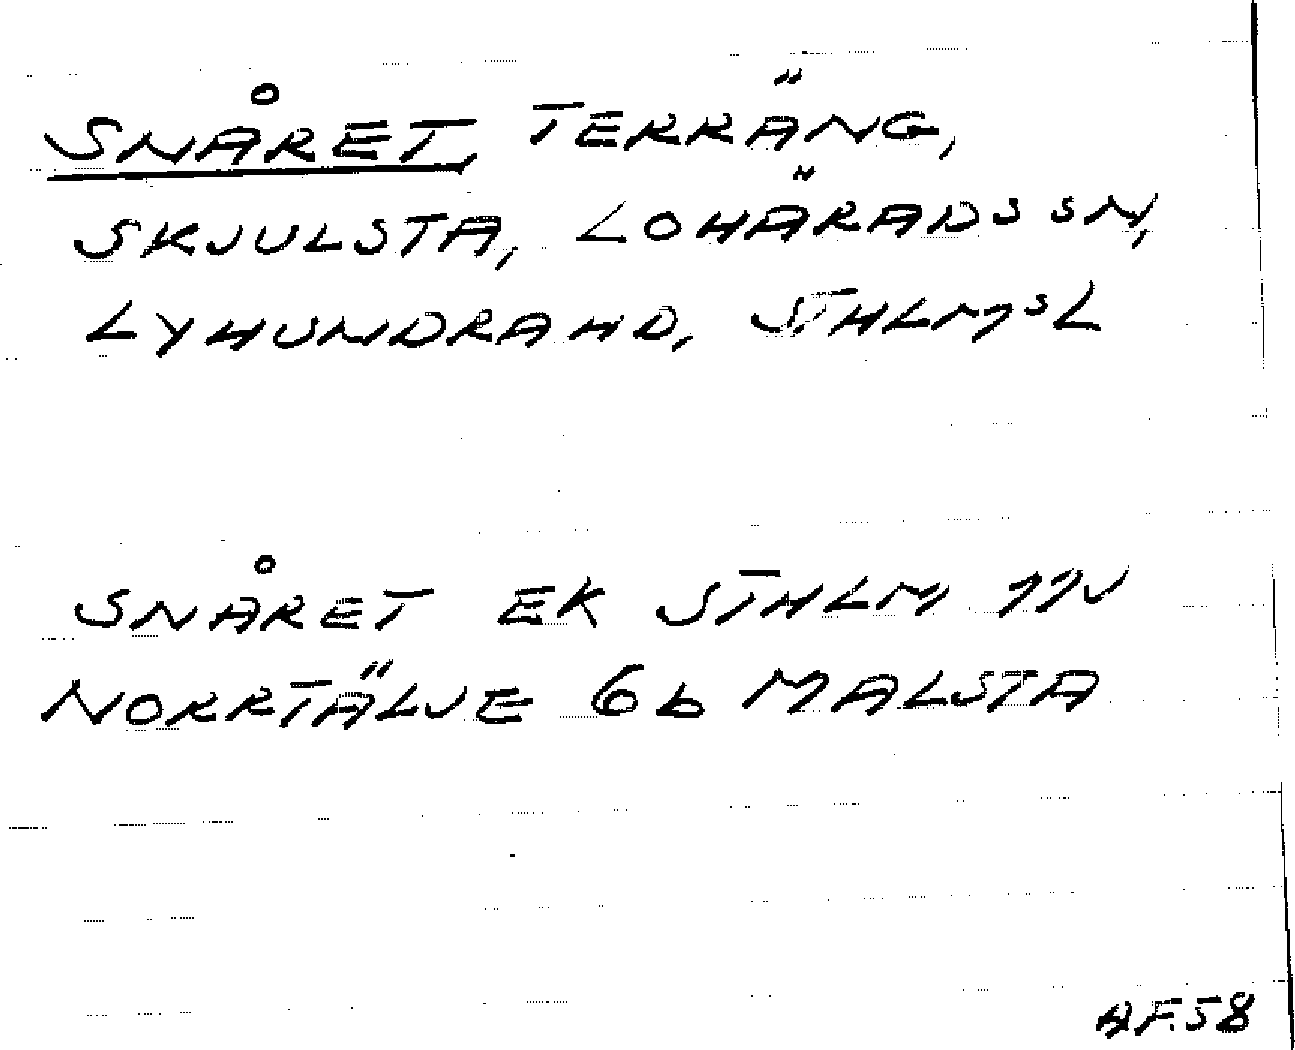 SNÅRET, TERRÄNG,
SKJULSTA, LOHÄRADS SN,
LYHUNDRA HD, STHLMS L
SNÅRET EK STHLM 11N
NORRTÄLJE 6b MALSTA
AF.58